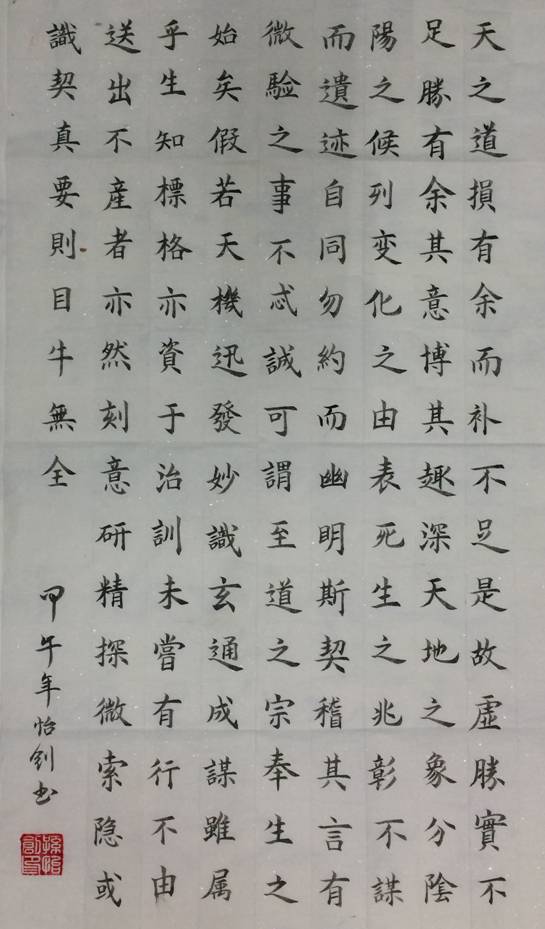 天之道損有余而补不足是故虛勝實不
足勝有余其意博其趣深天地之象分陰
陽之候列变化之由表死生之兆彰不謀
而遺迹自同勿約而幽明斯契稽其言有
微驗之事不忒誠可謂至道之宗奉生之
始矣假若天機迅發妙識玄通成謀雖属
乎生知標格亦資于治訓未嘗有行不由
送出不産者亦然刻意研精探微索隐或
識契真要則目牛無全
甲午年怡钊书